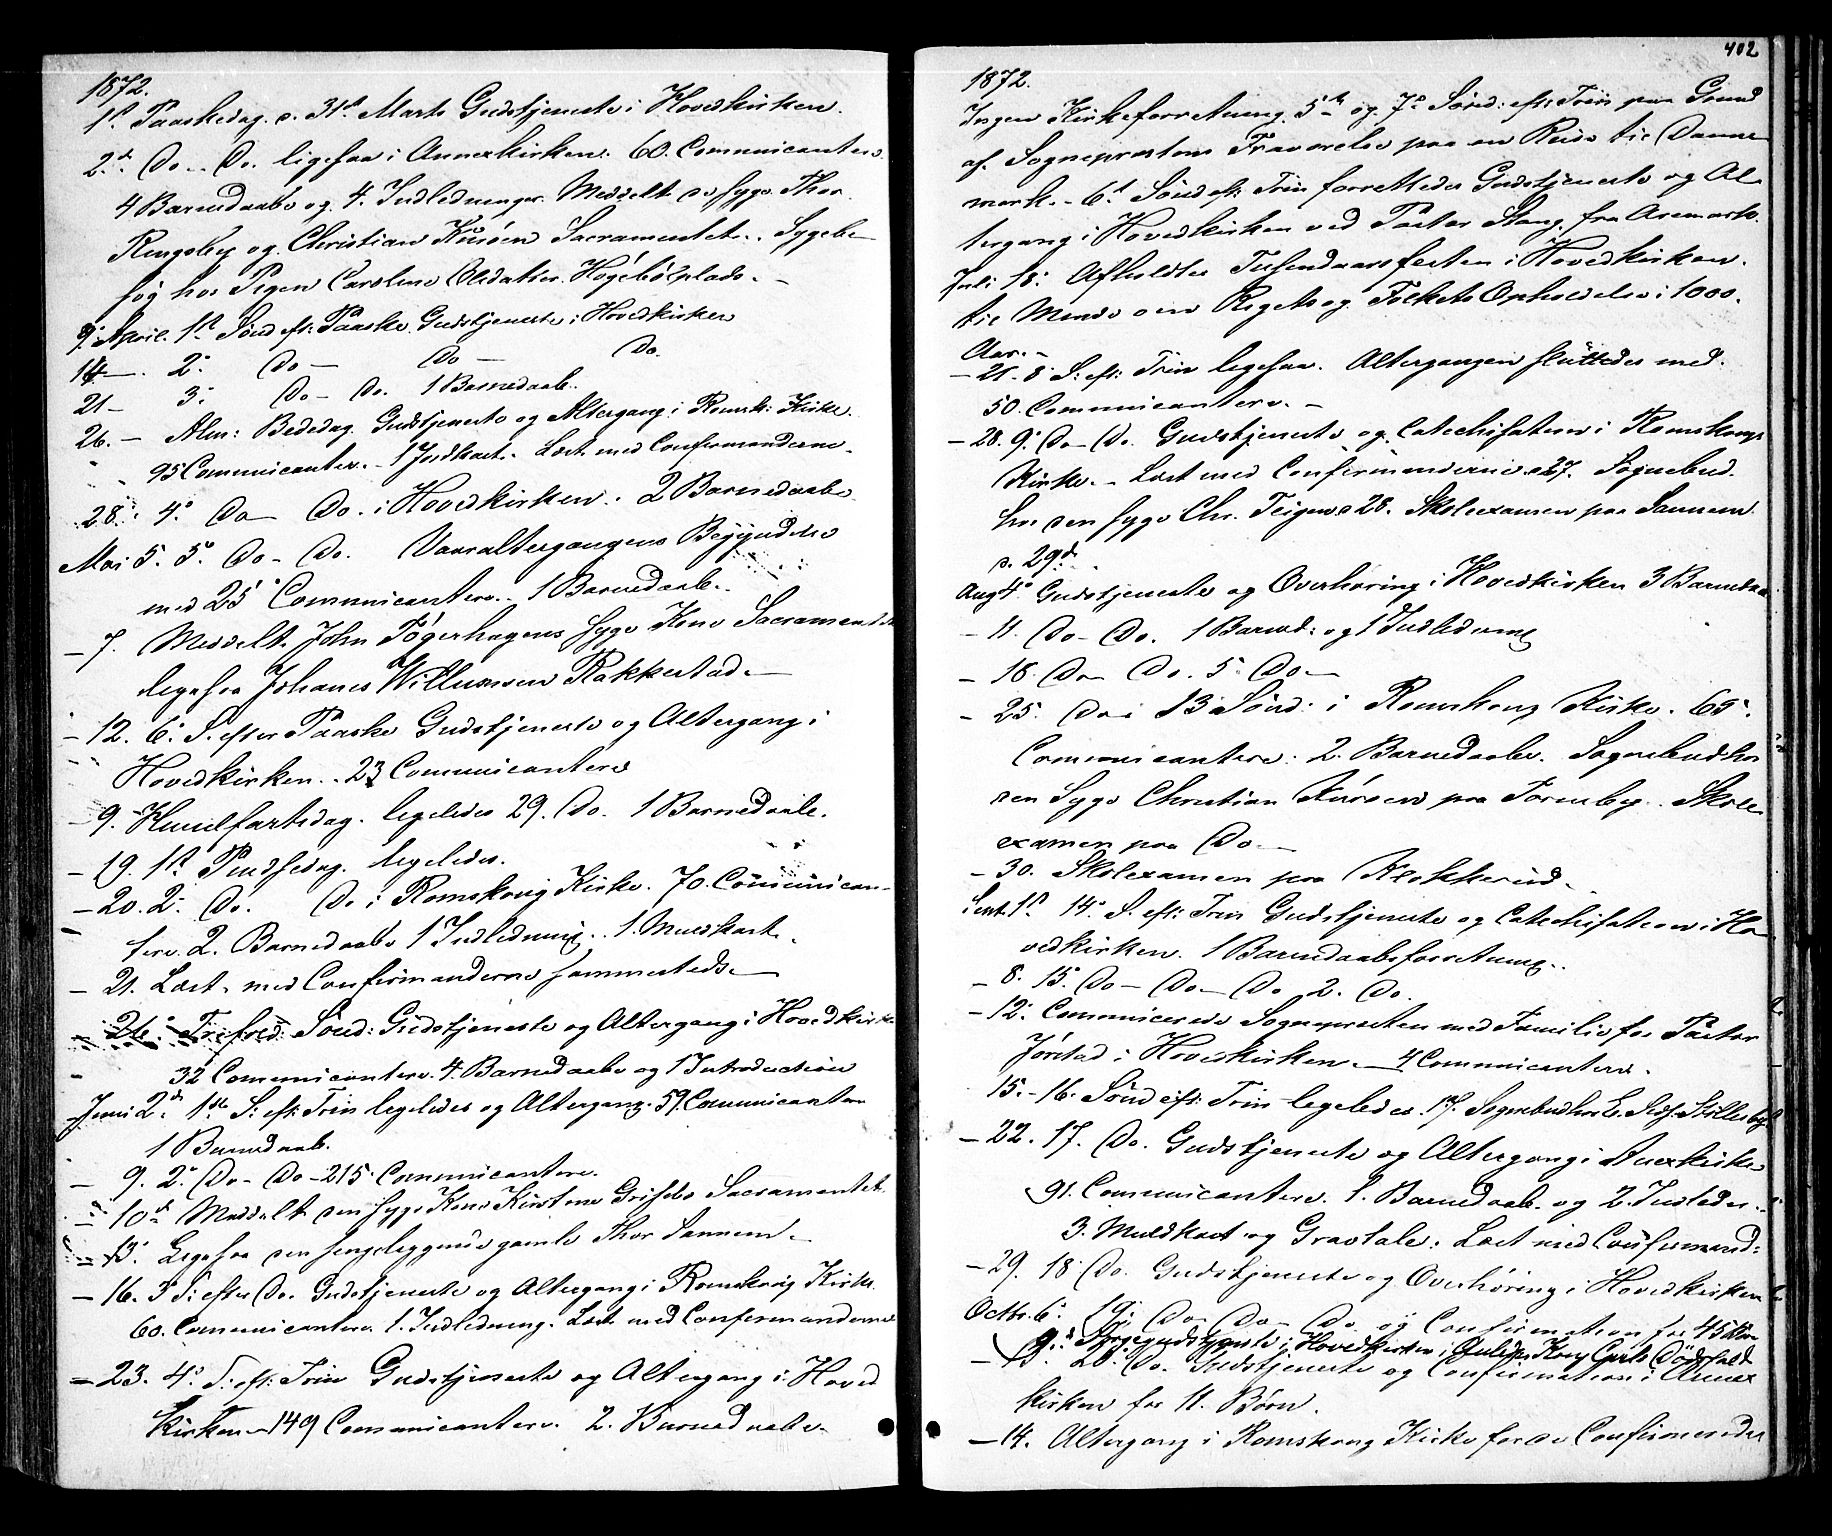 1872.
1ste Paaskedag. d. 31te Marts Gudstjeneste i Hovedkirken.
2d. Do - Do. ligesaa i Annexkirken. 60. Communicantere.
4 Barnedaabe og 4. Indledninger. Meddelt de syge Thor
Ringsby og Christian Sacramentet. Sygebe-
søg hos Pigen Caroline Olsdatter Høgebølplads. -
April. 1ste Sønd. eft: Paaske Gudstjeneste i Hovedkirken
14 - . 2. Do - Do - Do.
21 - 3: Do - Do. 1 Barnedaab.
26. - Alm: Bededag. Gudstjeneste og Altergang i Romsk: Kirke.
95 Communicanter. - 1 Jordkast. Læst med Confirmanderne.
28. 4. Do - Do. i Hovedkirken. 2 Barnedaabe
Mai 5. 5. Do - Do. Vaaraltergangens Begyndelse
med 25 Communicantere. 1 Barnedaab.
- 7. Meddelt John Tøgerhagens syge Kone Sacramentet
ligesaa Johanes Willumsen Rakkestad. -
- 12. 6. S. efter Paaske Gudstjeneste og Altergang i
Hovedkirken. 23 Communicantere
- 9. Himelfartsdag. ligeledes 29. Do. 1 Barnedaab.
- 19. 1ste Pindsedag. ligeledes.
- 20. 2. Do. Do i Romskoug Kirke. 70. Communican-
tere. 2. Barnedaabe 1 Indledning. 1. Muldkast.
- 21. Læst med Confirmanderne sammesteds. -
- 26. Trefold: Sønd: Gudstjeneste og Altergang i Hovedkirk
32 Communicantere. 4. Barnedaabe og 1 Introduction
Juni 2. 1ste S: eft: Trin ligeledes og Altergang. 59. Communicanter
1 Barnedaab.
- 9. 2. Do - Do - 215. Communicantere.
- 10de Meddelt den syge Kone Kirstine Grisebo Sacramentet.
- 13. Ligesaa den sengeliggende gamle Thor Sannem. -
- 16. 3 S: efter Do. Gudstjeneste og Altergang i Romskoug Kirke.
60. Communicantere. 1. Indledning. Læst med Confirmanderne
- 23. 4. S: eft: Trin Gudstjeneste og Altergang i Hoved
Kirken - 149 Communicantere. 2. Barnedaabe.
402
1872.
Ingen Kirkeforretning 5te og 7de Sønd: eft: Trin paa Grund
af Sognepræstens Fraværelse paa en Reise til Danne-
mark. - 6te Sønd eft: Trin forrettedes Gudstjeneste og Al-
tergang i Hovedkirken ved Pastor Stang fra Aremark.
Juli 18. Afholdtes Tusendaarsfesten i Hovedkirken.
til Minde om Rigets og Folkets Opholdelse i 1000.
Aar. -
- 21. 8 S: eft: Trin ligesaa. Altergangen sluttedes med.
50. Communicantere. -
- 28. 9. Do - Do. Gudstjeneste og Catechisation i Romskougs
Kirke. - Læst med Confirmanderne d 27. Sognebud.
hos den syge Chr. Teigen d 28. Skoleexamen paa Sannem
d. 29de
Aug 4. Gudstjeneste og Overhøring i Hovedkirken 3 Barnedaa
- 11. Do - Do. 1 Barned: og 1 Indledning
- 18. Do - Do. 5. Do -
- 25. Do i 13 Sønd: i Romskoug Kirke. 65.
Communicantere. 2. Barnedaabe. Sognebud hos
den Syge Christian paa Tørnby. Skole-
examen paa Do -
- 30. Skolexamen paa Klokkerud.
Sept. 1ste 14. S. eft: Trin Gudstjeneste og Catechisation i Ho-
vedkirken. 1 Barnedaabsforretning.
- 8. 15. Do - Do - Do 2. Do.
- 12. Communicerede Sognepræsten med Familie for Pastor
Jørstad i Hovedkirken. - 4 Communicantere.
15. - 16. Sønd eft: Trin ligeledes. 17. Sognebud hos
- 22. 17. Do. Gudstjeneste og Altergang i Anexkirke
91. Communicantere. 1. Barnedaab. og 2. Indleder.
3. Muldkast og Gravtale. Læst med Confirmand:
- 29. 18. Do. Gudstjeneste og Overhøring i Hovedkirken
Octbr. 6. 19. Do - Do - Do og Confirmation for 45 Børn
9. Sørgegudstjeneste i Hovedkirken i Anledn. Kong Carls Dødsfald
- 13. 20. Do. Gudstjeneste og Confirmation i Annex
kirken for 11. Børn.
- 14. Altergang i Romskoug Kirke for de Confirmerede